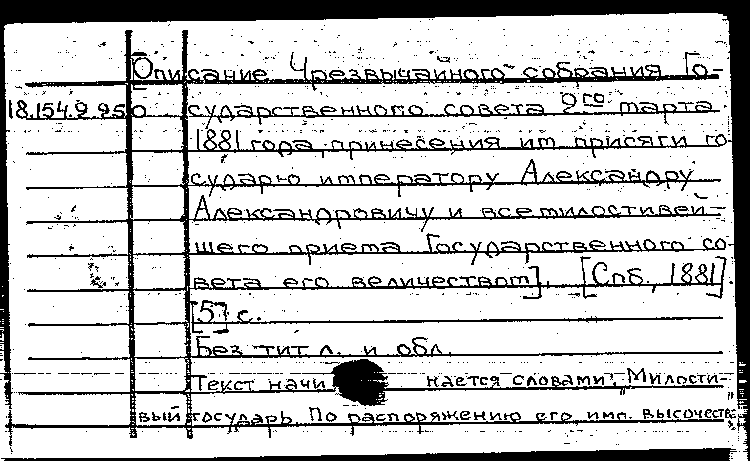 [Описание Чрезвычайного собрания Го-
18.154.9.95о сударственного совета 2го марта
1881 года, принесения им присяги го-
сударю императору Александру
Александровичу и всемилостивей-
шего приема Государственного со-
вета его величеством]. [Спб., 1881].
[5] с.
Без тит л. и обл.
Текст начинается словами: "Милости-
вый государь. По распоряжению его имп. высочеств